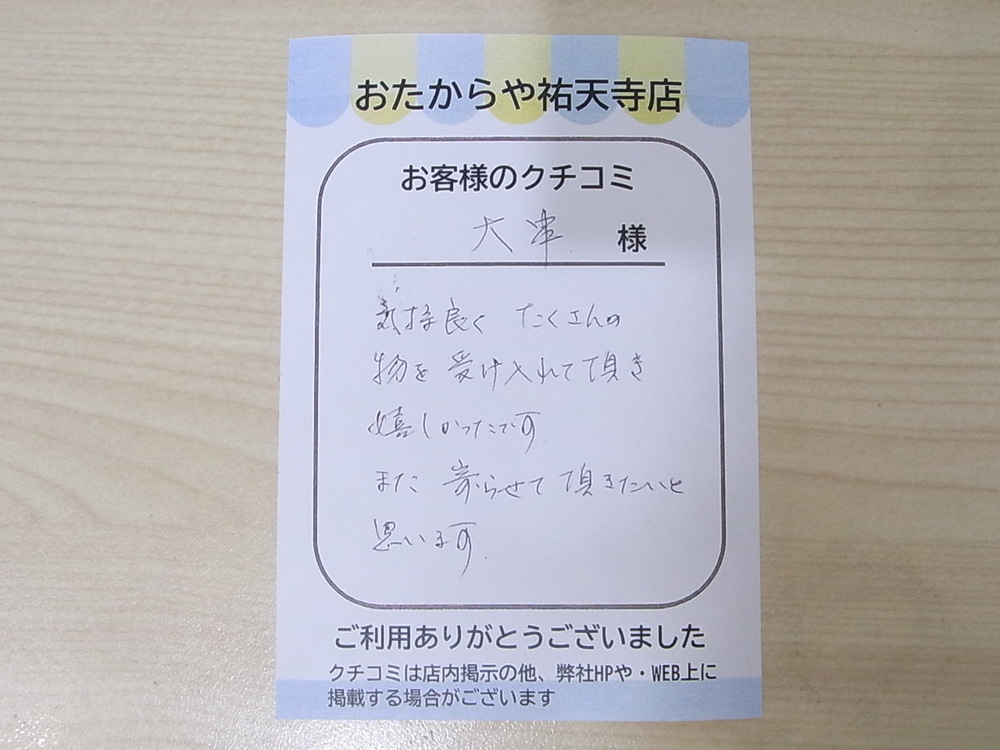 おたからや祐天寺店
お客様のクチコミ
大串 様
気持良く たくさんの
物を 受け入れて頂き
嬉しかったです
また 寄らせて 頂きたいと
思います.
ご利用ありがとうございました
クチコミは店内掲示の他、弊社HPや・WEB上に
掲載する場合がございます